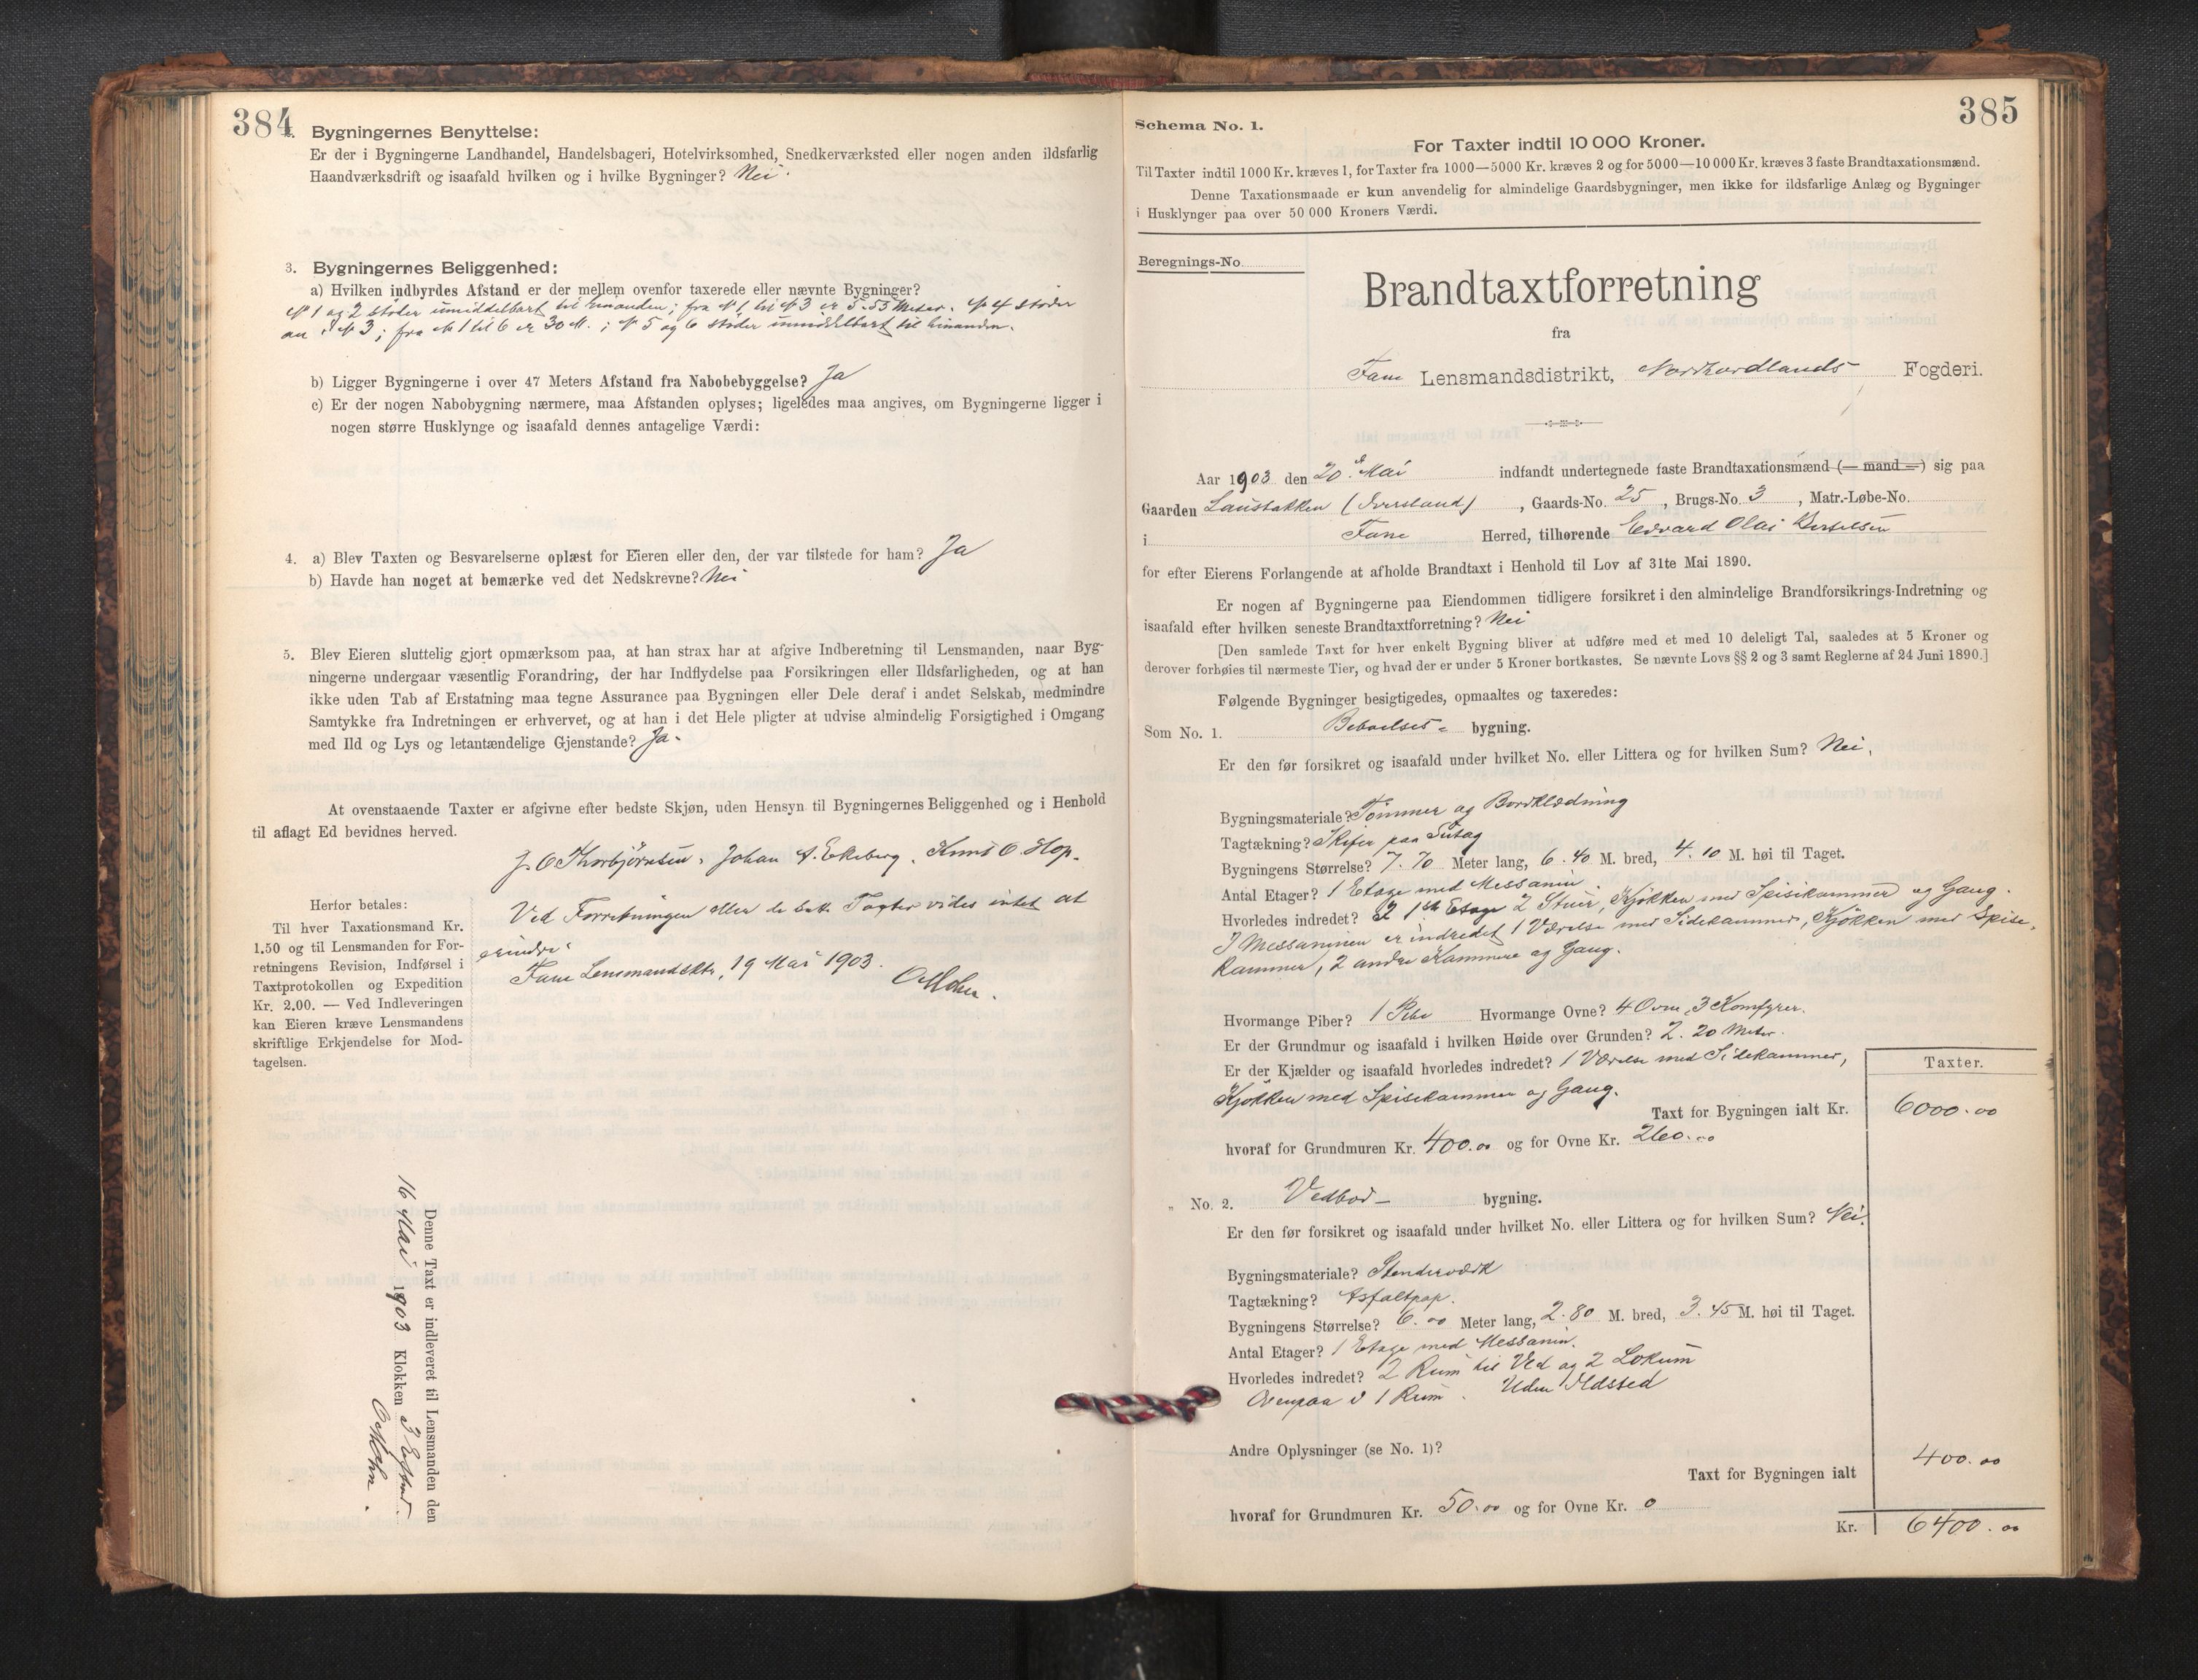 384
2. Bygningernes Benyttelse:
Er der i Bygningerne Landhandel, Handelsbageri, Hotelvirksomhed, Snedkerværksted eller nogen anden ildsfarlig
Haandværksdrift og isaafald hvilken og i hvilke Bygninger? Nei.
3. Bygningernes Beliggenhed:
a) Hvilken indbyrdes Afstand er der mellem ovenfor taxerede eller nævnte Bygninger?
No 1 og 2 støder umiddelbart til hinanden; fra No 1 til No 3 er 5.55 Meter. No 4 støder
an i No 3; fra No 1 til 6 er 30 M.; No 5 og 6 støder umiddelbart til hinanden.
b) Ligger Bygningerne i over 47 Meters Afstand fra Nabobebyggelse? Ja
c) Er der nogen Nabobygning nærmere, maa Afstanden oplyses; ligeledes maa angives, om Bygningerne ligger i
nogen større Husklynge og isaafald dennes antagelige Værdi:
4. a) Blev Taxten og Besvarelserne oplæst for Eieren eller den, der var tilstede for ham? Ja
b) Havde han noget at bemærke ved det Nedskrevne? Nei
5. Blev Eieren sluttelig gjort opmærksom paa, at han strax har at afgive Indberetning til Lensmanden, naar Byg-
ningerne undergaar væsentlig Forandring, der har Indflydelse paa Forsikringen eller Ildsfarligheden, og at han
ikke uden Tab af Erstatning maa tegne Assurance paa Bygningen eller Dele deraf i andet Selskab, medmindre
Samtykke fra Indretningen er erhvervet, og at han i det Hele pligter at udvise almindelig Forsigtighed i Omgang
med Ild og Lys og letantændelige Gjenstande? Ja.
At ovenstaaende Taxter er afgivne efter bedste Skjøn, uden Hensyn til Bygningernes Beliggenhed og i Henhold
til aflagt Ed bevidnes herved.
J. O Thorbjörnsen. Johan A. Ekeberg. Knud O. Hop.
Herfor betales:
Til hver Taxationsmand Kr.
1.50 og til Lensmanden for For-
retningens Revision, Indførsel i
Taxtprotokollen og Expedition
Kr. 2.00. — Ved Indleveringen
kan Eieren kræve Lensmandens
skriftlige Erkjendelse for Mod-
tagelsen.
Ved Forretningen eller de satte Taxter vides intet at
erindre.
Fane Lensmandsktr, 19 Mai 1903.
Denne Taxt er indleveret til Lensmanden den
16 Mai 1903 Klokken 3 Efterm.
385
Schema No. 1.
For Taxter indtil 10 000 Kroner.
Til Taxter indtil 1000 Kr. kræves 1, for Taxter fra 1000—5000 Kr. kræves 2 og for 5000—10 000 Kr. kræves 3 faste Brandtaxationsmænd.
Denne Taxationsmaade er kun anvendelig for almindelige Gaardsbygninger, men ikke for ildsfarlige Anlæg og Bygninger
i Husklynger paa over 50 000 Kroners Værdi.
Beregnings-No.
Brandtaxtforretning
fra
Fane Lensmandsdistrikt, Nordhordlands Fogderi.
Aar 1903 den 20de Mai indfandt undertegnede faste Brandtaxationsmænd (— mand —) sig paa
Gaarden Laustakken (Iversland), Gaards-No. 25, Brugs-No. 3, Matr.-Løbe-No.
i Fane Herred, tilhørende Edvard Olai Bertelsen
for efter Eierens Forlangende at afholde Brandtaxt i Henhold til Lov af 31te Mai 1890.
Er nogen af Bygningerne paa Eiendommen tidligere forsikret i den almindelige Brandforsikrings-Indretning og
isaafald efter hvilken seneste Brandtaxtforretning? Nei
[Den samlede Taxt for hver enkelt Bygning bliver at udføre med et med 10 deleligt Tal, saaledes at 5 Kroner og
derover forhøies til nærmeste Tier, og hvad der er under 5 Kroner bortkastes. Se nævnte Lovs §§ 2 og 3 samt Reglerne af 24 Juni 1890.]
Følgende Bygninger besigtigedes, opmaaltes og taxeredes:
Som No. 1. Beboelses- bygning.
Er den før forsikret og isaafald under hvilket No. eller Littera og for hvilken Sum? Nei.
Bygningsmateriale? Tömmer og Bordklædning
Tagtækning? Skifer paa Sutag
Bygningens Størrelse? 7.70 Meter lang, 6.40 M. bred, 4.10 M. høi til Taget.
Antal Etager? 1 Etage med Messanin.
Hvorledes indredet? I 1ste Etage 2 Stuer, Kjökken med Spisekammer og Gang.
I Messaninen er indredet 1 Værelse med Sidekammer, Kjökken med Spise-
kammer, 2 andre Kammere og Gang.
Hvormange Piber? 1 Pibe Hvormange Ovne? 4 Ovne, 3 Komfyrer.
Er der Grundmur og isaafald i hvilken Høide over Grunden? 2.20 Meter.
Er der Kjælder og isaafald hvorledes indredet? 1 Værelse med Sidekammer,
Kjökken med Spisekammer og Gang.
Taxter.
Taxt for Bygningen ialt Kr. 6000.00
hvoraf for Grundmuren Kr. 400.00 og for Ovne Kr. 260.00
" No. 2. Vedbod- bygning.
Er den før forsikret og isaafald under hvilket No. eller Littera og for hvilken Sum? Nei.
Bygningsmateriale? Stenderværk
Tagtækning? Asfaltpap.
Bygningens Størrelse? 6.00 Meter lang, 2.80 M. bred, 3.45 M. høi til Taget.
Antal Etager? 1 Etage med Messanin.
Hvorledes indredet? 2 Rum til Ved og 2 Lokum
Ovenpaa i 1 Rum. Uden Ildsted
Andre Oplysninger (se No. 1)?
Taxt for Bygningen ialt 400.00
hvoraf for Grundmuren Kr. 50.00 og for Ovne Kr. 0
Kr. 6400.00